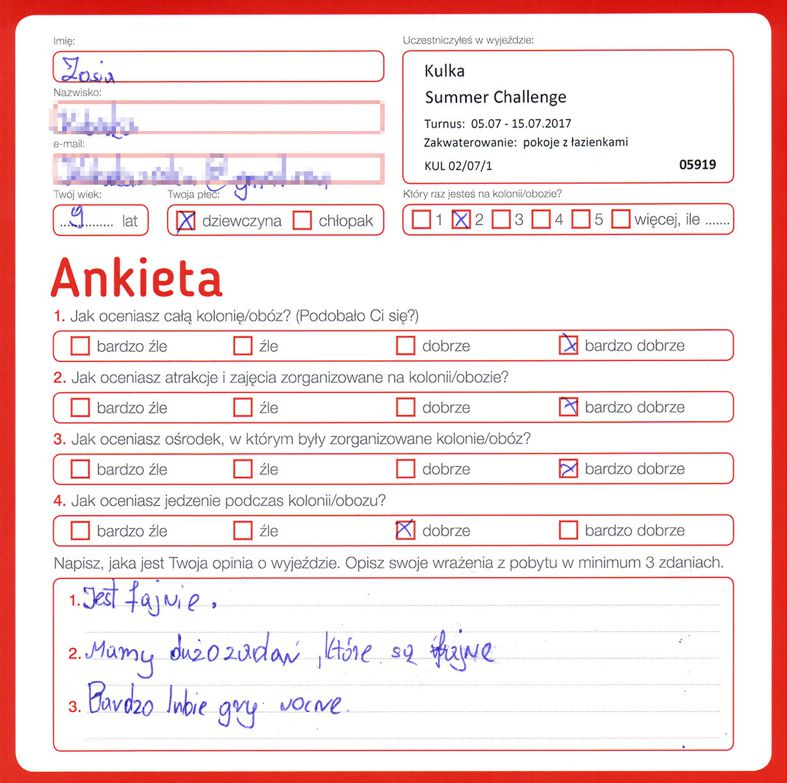 Imię:
Zosia
Nazwisko:
e-mail:
Twój wiek:
...9... lat
Twoja płeć:
dziewczyna chłopak
Uczestniczyłeś w wyjeździe:
Kulka
Summer Challenge
Turnus: 05.07 - 15.07.2017
Zakwaterowanie: pokoje z łazienkami
KUL 02/07/1 05919
Który raz jesteś na kolonii/obozie?
1 2 3 4 5 więcej, ile .......
Ankieta
1. Jak oceniasz całą kolonię/obóz? (Podobało Ci się?)
bardzo źle źle dobrze bardzo dobrze
2. Jak oceniasz atrakcje i zajęcia zorganizowane na kolonii/obozie?
bardzo źle źle dobrze bardzo dobrze
3. Jak oceniasz ośrodek, w którym były zorganizowane kolonie/obóz?
bardzo źle źle dobrze bardzo dobrze
4. Jak oceniasz jedzenie podczas kolonii/obozu?
bardzo źle źle dobrze bardzo dobrze
Napisz, jaka jest Twoja opinia o wyjeździe. Opisz swoje wrażenia z pobytu w minimum 3 zdaniach.
1. Jest fajnie.
2. Mamy dużo zadań, które są fajne
3. Bardzo lubie gry nocne.